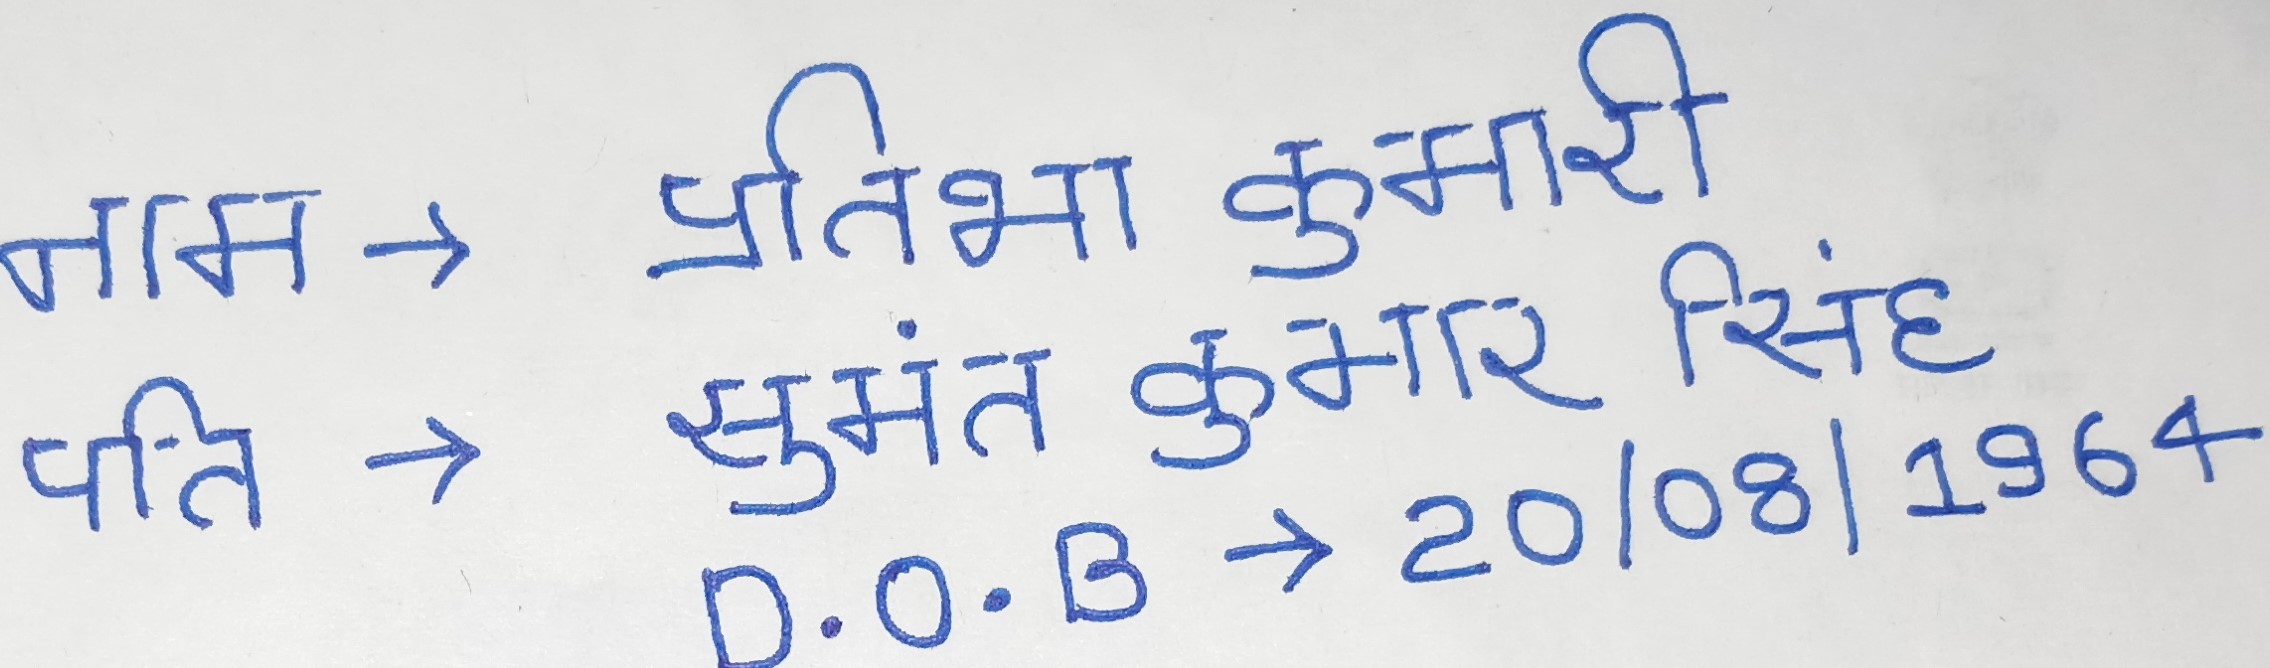 नाम → प्रतिभा कुमारी
पति → सुमंत कुमार सिंह
D.O.B → 20/08/1964